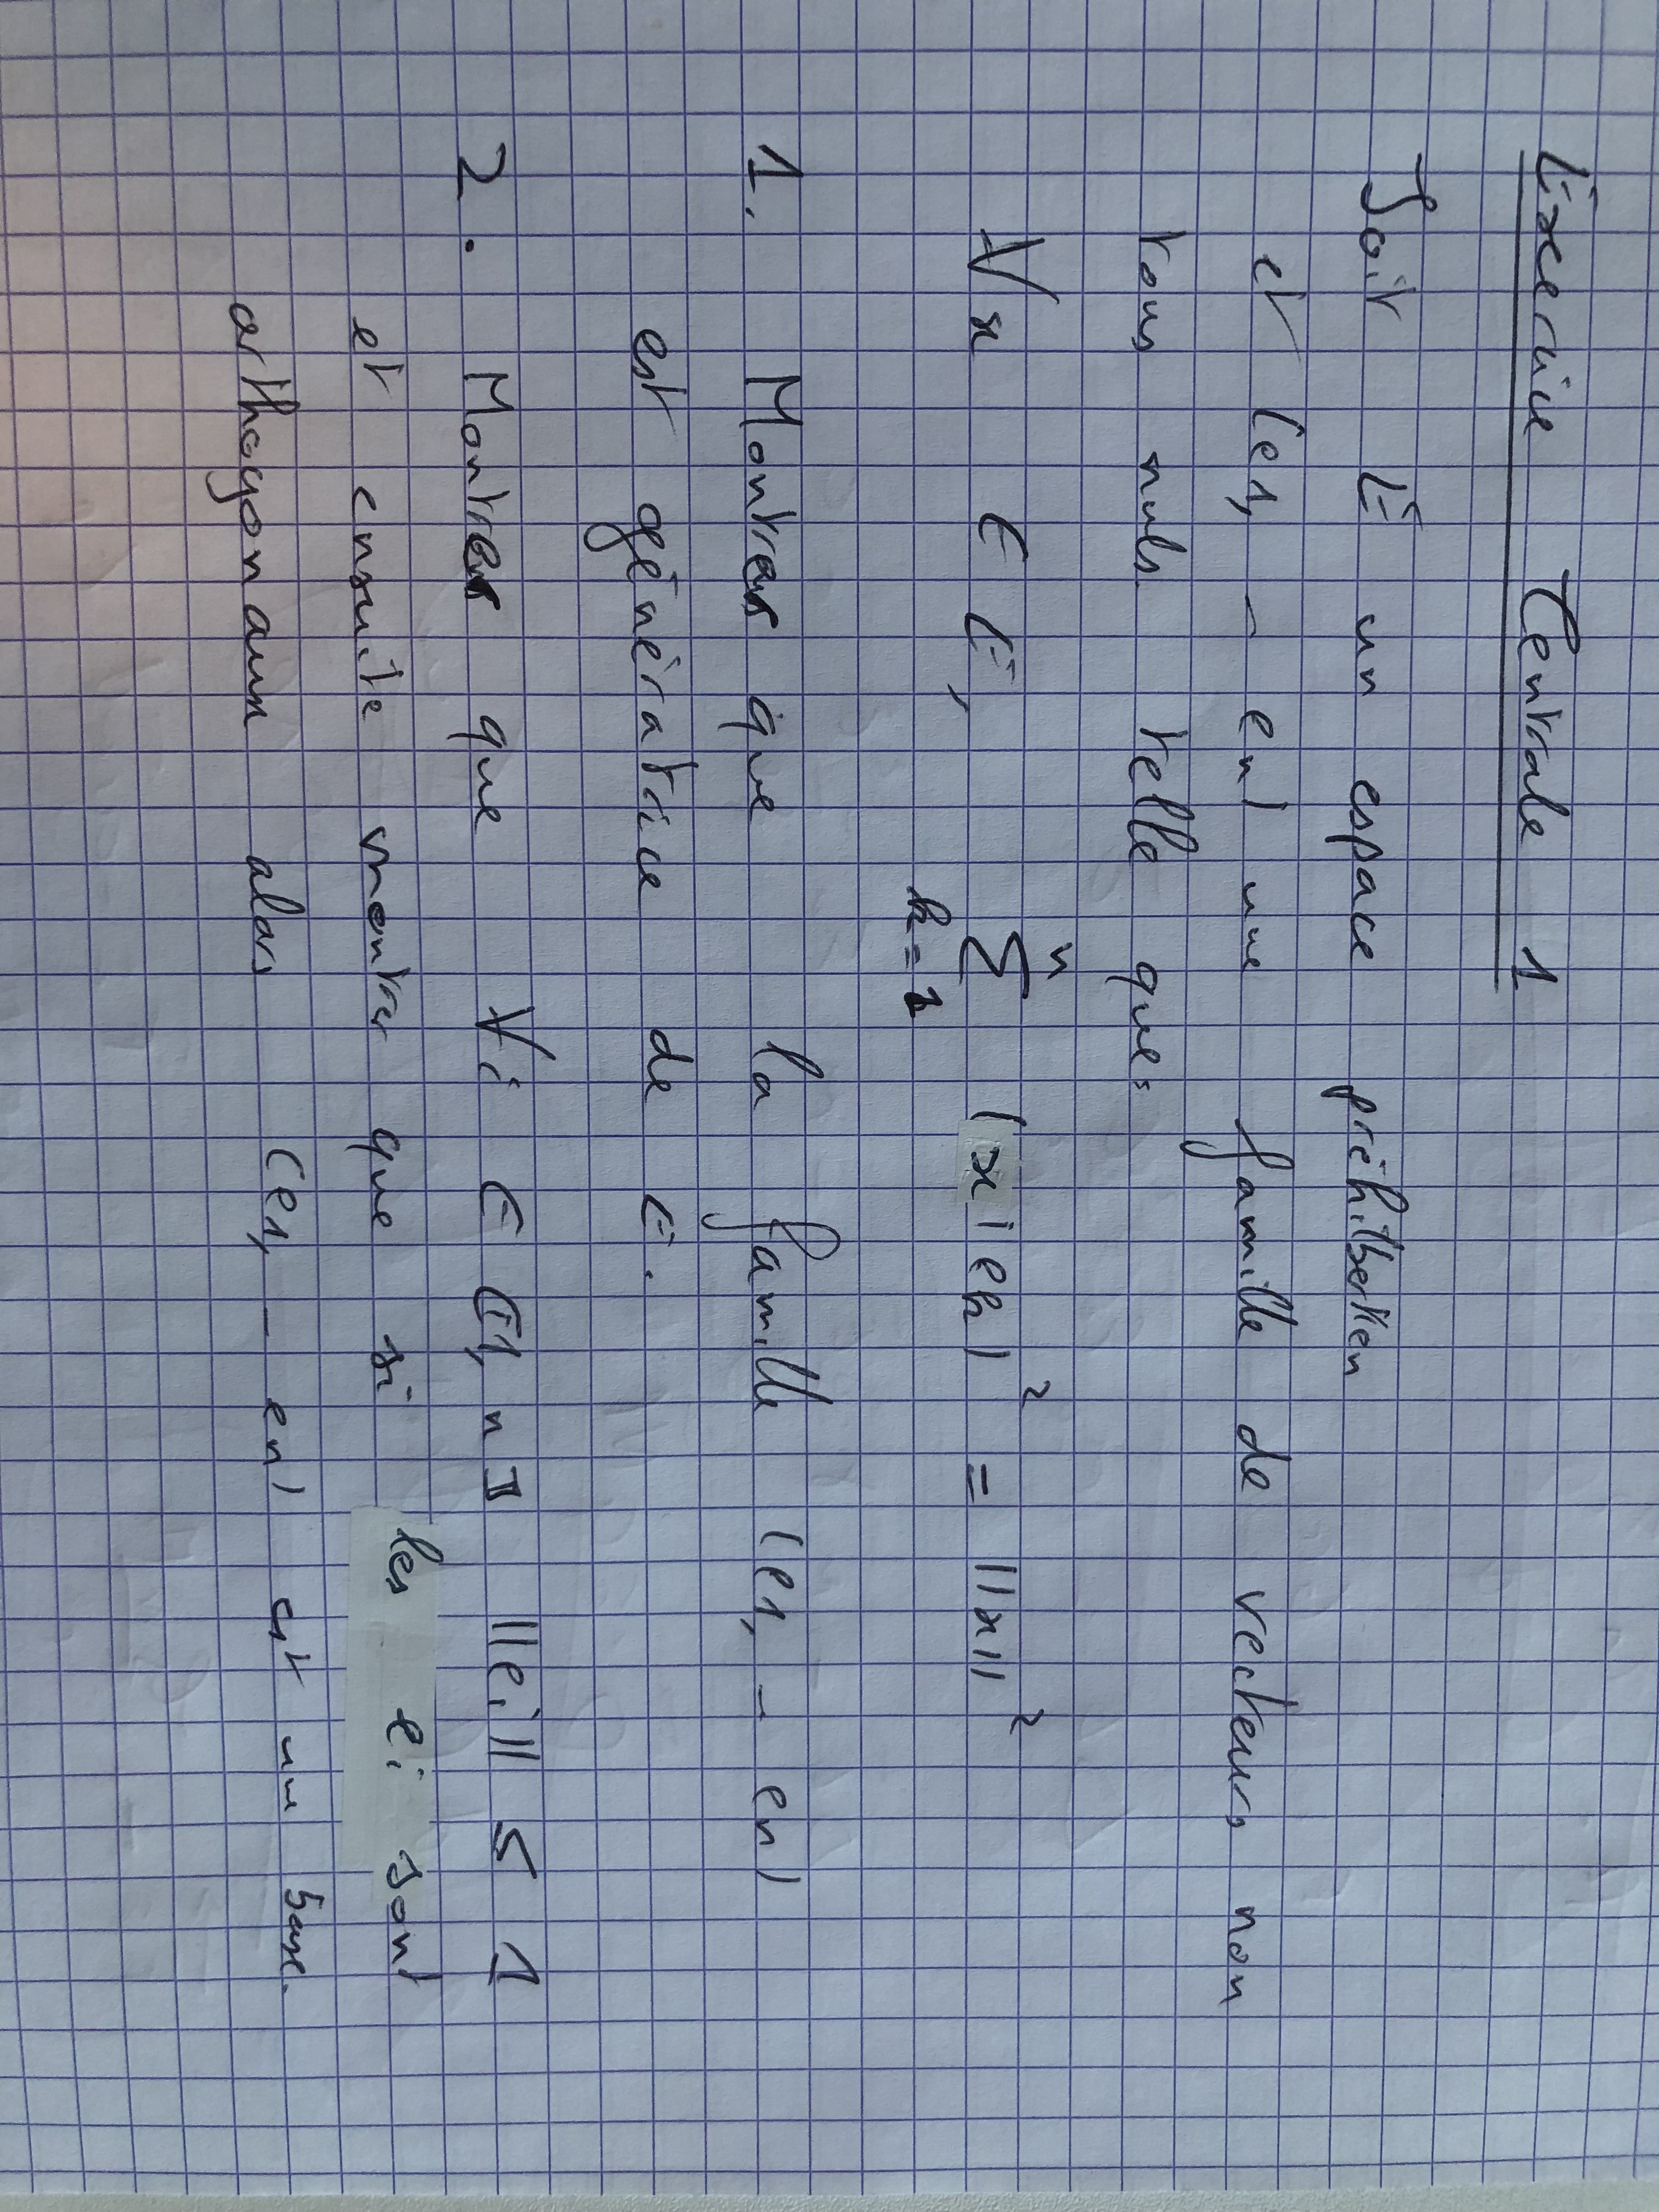 Exercice Centrale 1
Soit E un espace préhilbertien
et (e1, – en) une famille de vecteurs non
tous nuls telle que:
∀x ∈ E, n∑k=1 (x|ek)² = ||x||²
1. Montrer que la famille (e1, – en)
est génératrice de E.
2. Montrer que ∀i ∈ ⟦1, n⟧ ||ei|| ≤ 1
et ensuite montrer que si les ei sont
orthogonaux alors (e1, – en) est une base.